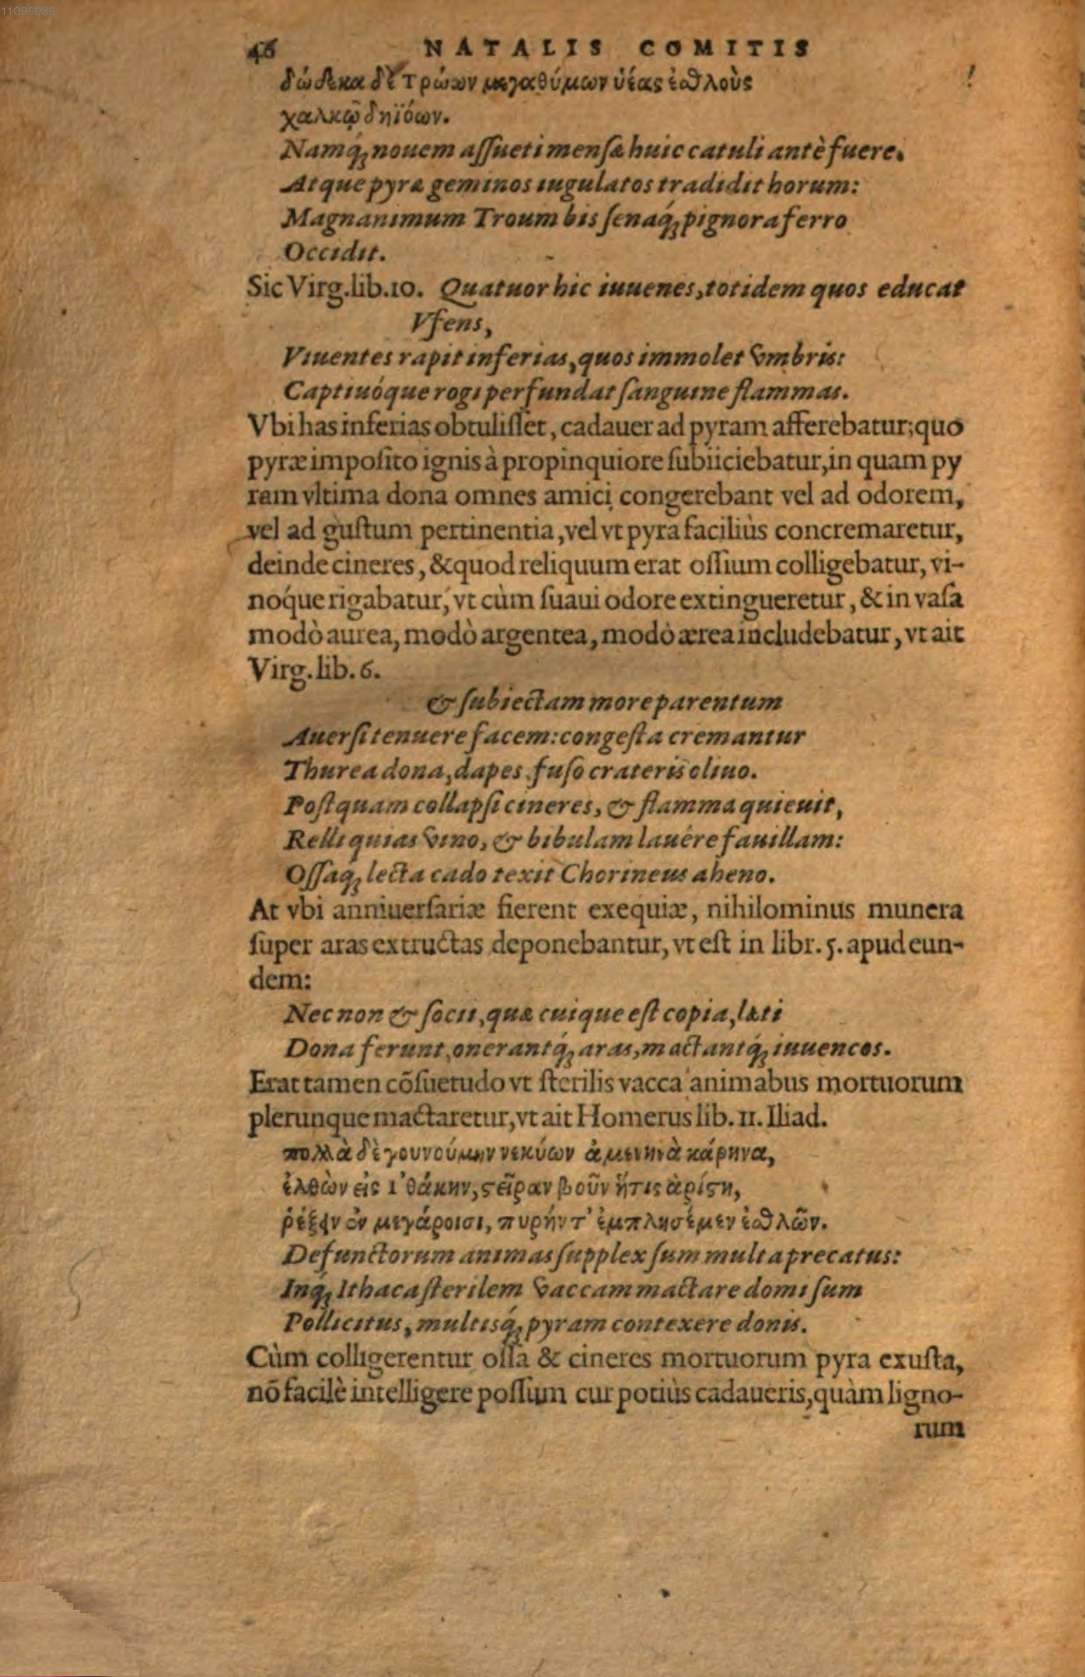 11095086
46 NATALIS COMITIS
δώδεκα δὲ Τρώων μεγαθύμων υἱέας ἐσθλοὺς
χαλκῷ δηϊόων.
Namq́; nouem aſſueti menſæ huic catuli antè fuere.
Atque pyræ geminos iugulatos tradidit horum:
Magnanimum Troum bis ſenaq́; pignora ferro
Occidit.
Sic Virg. lib. 10. Quatuor hic iuuenes, totidem quos educat
Vfens,
Viuentes rapit inferias, quos immolet vmbris:
Captiuóque rogi perfundat ſanguine flammas.
Vbi has inferias obtuliſſet, cadauer ad pyram afferebatur; quo
pyræ impoſito ignis à propinquiore ſubiiciebatur, in quam py
ram vltima dona omnes amici congerebant vel ad odorem,
vel ad guſtum pertinentia, vel vt pyra faciliùs concremaretur,
deinde cineres, & quod reliquum erat oſſium colligebatur, vi-
noq́ue rigabatur, vt cùm ſuaui odore extingueretur, & in vaſa
modò aurea, modò argentea, modò ærea includebatur, vt ait
Virg. lib. 6.
& ſubiectam more parentum
Auerſi tenuere facem: congeſta cremantur
Thurea dona, dapes, fuſo crateris oliuo.
Poſtquam collapſi cineres, & flamma quieuit,
Relliquias vino, & bibulam lauêre fauillam:
Oſſaq́; lecta cado texit Chorineus aheno.
At vbi anniuerſariæ fierent exequiæ, nihilominus munera
ſuper aras extructas deponebantur, vt eſt in libr. 5. apud eun-
dem:
Nec non & ſocii, quæ cuique eſt copia, læti
Dona ferunt, onerantq́; aras, mactantq́; iuuencos.
Erat tamen cõſuetudo vt ſterilis vacca animabus mortuorum
plerunque mactaretur, vt ait Homerus lib. 11. Iliad.
πολλὰ δὲ γουνούμην νεκύων ἀμενηνὰ κάρηνα,
ἐλθὼν εἰς ἰθάκην, στεῖραν βοῦν ἥτις ἀρίστη,
ῥέξειν ἐν μεγάροισι, πυρήν τ' ἐμπλησέμεν ἐσθλῶν.
Defunctorum animas ſupplex ſum multa precatus:
Inq́; Ithaca ſterilem vaccam mactare domi ſum
Pollicitus, multisq́; pyram contexere donis.
Cùm colligerentur oſſa & cineres mortuorum pyra exuſta,
nõ facilè intelligere poſſum cur potiùs cadaueris, quàm ligno-
rum